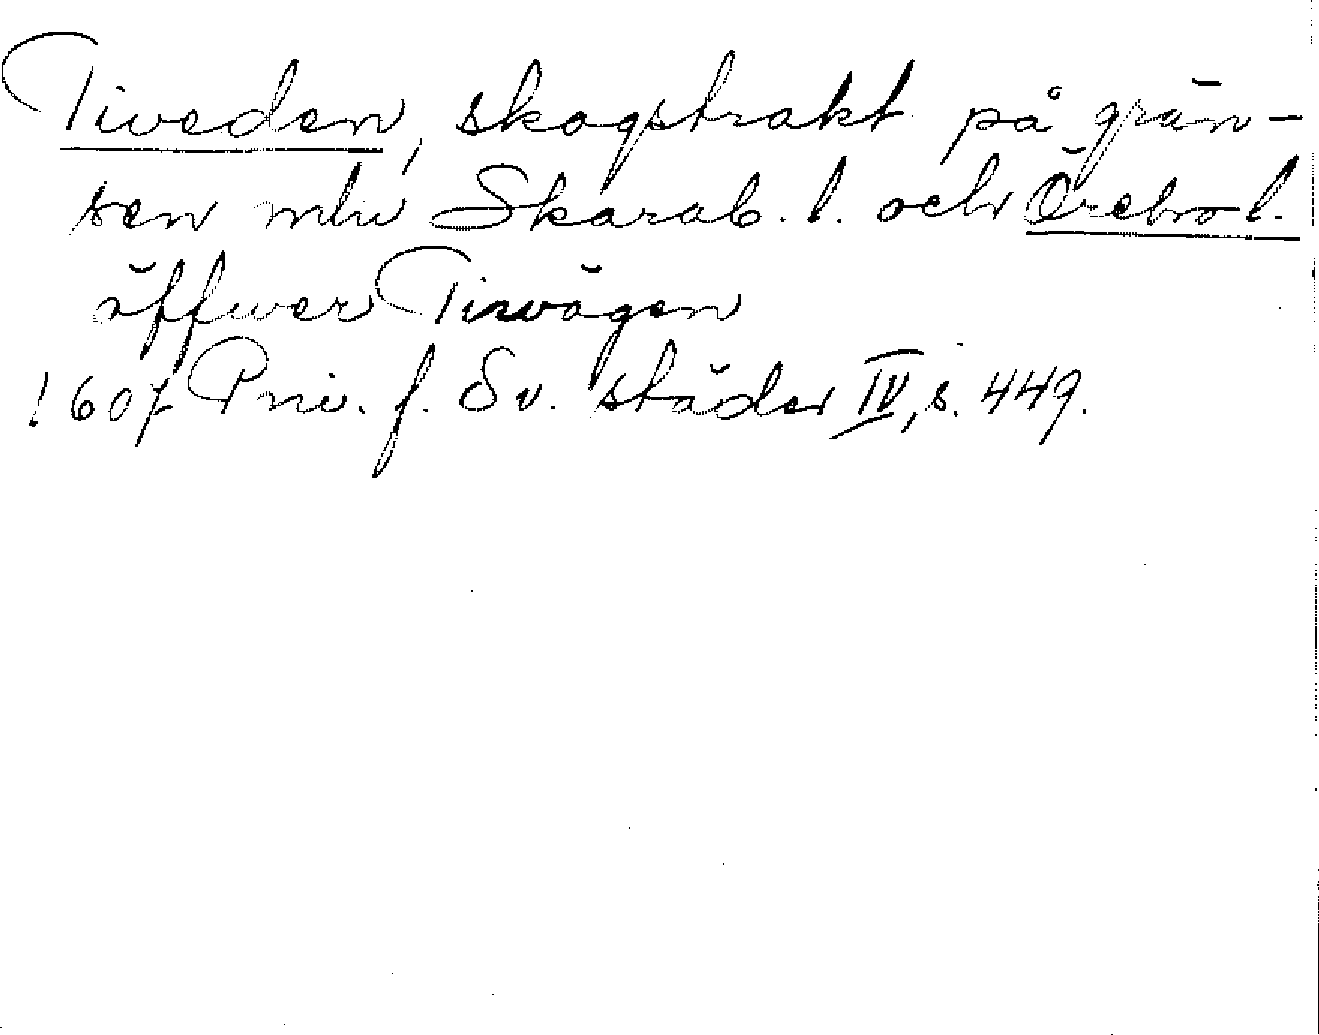 Tiveden, skogstrakt på grän-
sen mln Skarab. l. och Örebro l.
öffwer Tiwägen
1607 Priv. f. Sv. städer IV, s. 449.